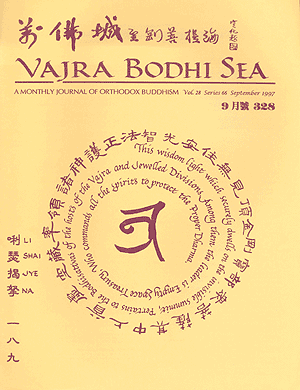 萬佛城金剛菩提海
VAJRA BODHI SEA
A MONTHLY JOURNAL OF ORTHODOX BUDDHISM Vol. 28 Series 66 September 1997
9月號 328
智光安住無見頂金剛寶部眾菩薩其中上首虛空藏率領諸神護正法
This wisdom light which securely dwells on the invisible summit, Pertains to the Bodhisattvas of the hosts of the Vajra and Jewelled Divisions. Among them the leader is Empty Space Treasury, Who commands all the spirits to protect the Proper Dharma.
唎 LI
瑟 SHAI
揭 JYE
拏 NA
一八九